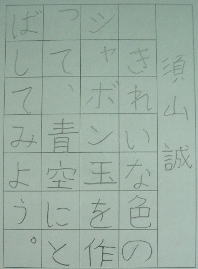 須山誠
きれいな色の
シャボン玉を作
って、青空にと
ばしてみよう。